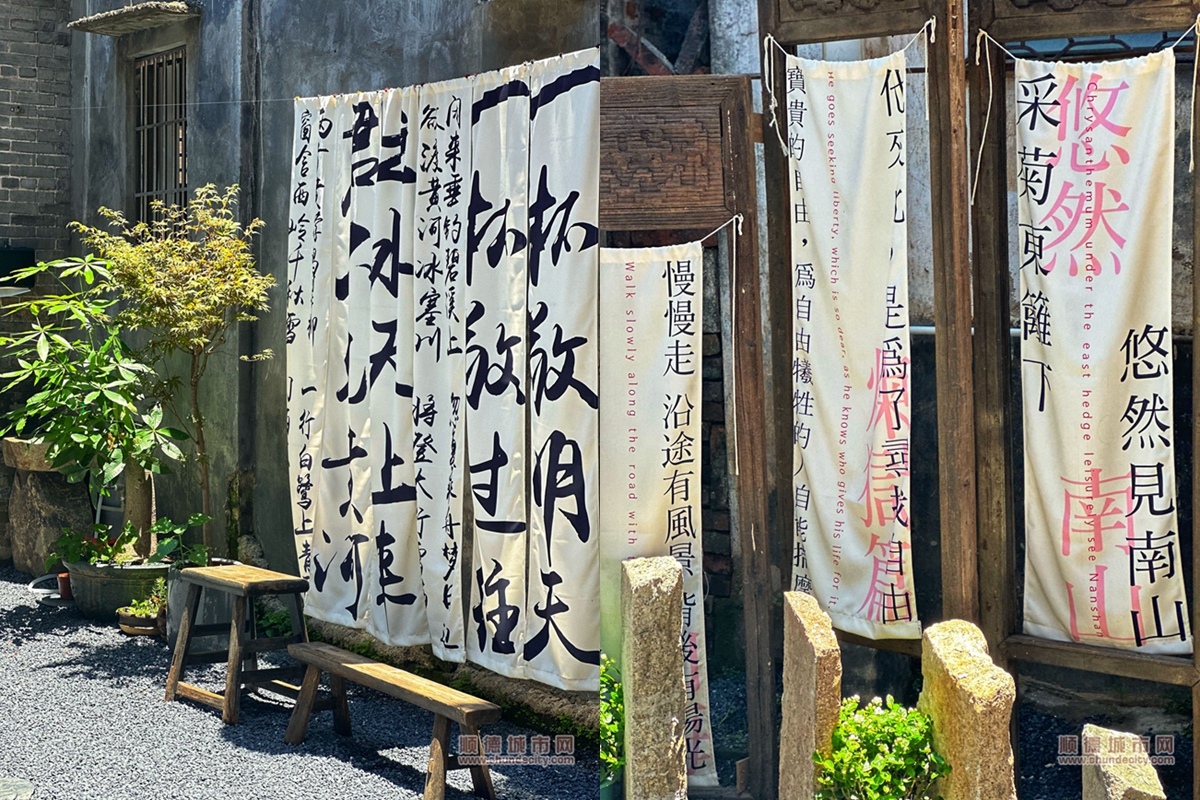 一杯敬明天
一杯敬过往
闲来垂钓碧溪上
乘舟梦日边
欲渡黄河冰塞川 将登太行
天上来
河
窗含西岭千秋雪
一行白鹭上青
慢慢走 沿途有風景 背後有陽光
Walk slowly along the road with
代 是為了尋找自由
寶貴的自由，為自由犧牲的人自能揣摩
He goes seeking liberty, which is so dear, as he knows who gives his life for it.
采菊東籬下
悠然見南山
悠然
南山
Chrysanthemum under the east hedge leisurely see Nanshan
顺德城市网
www.shundecity.com
顺德城市网
www.shundecity.com